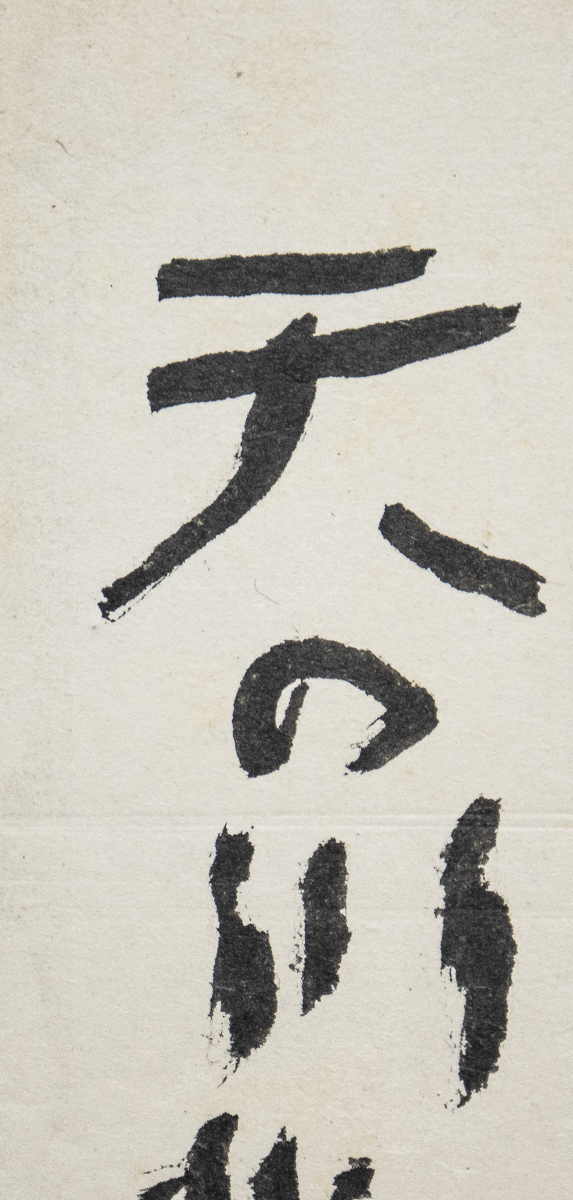 天の川